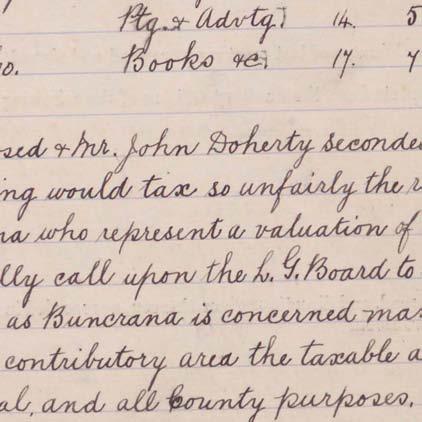 Ptg. & Advtg. 14. 5
o. Books &c. 17. 7
osed & Mr. John Doherty seconde
ing would tax so unfairly the r
na who represent a valuation of
lly call upon the L. G. Board to
as Buncrana is concerned ma
contributory area the taxable a
al, and all County purposes.